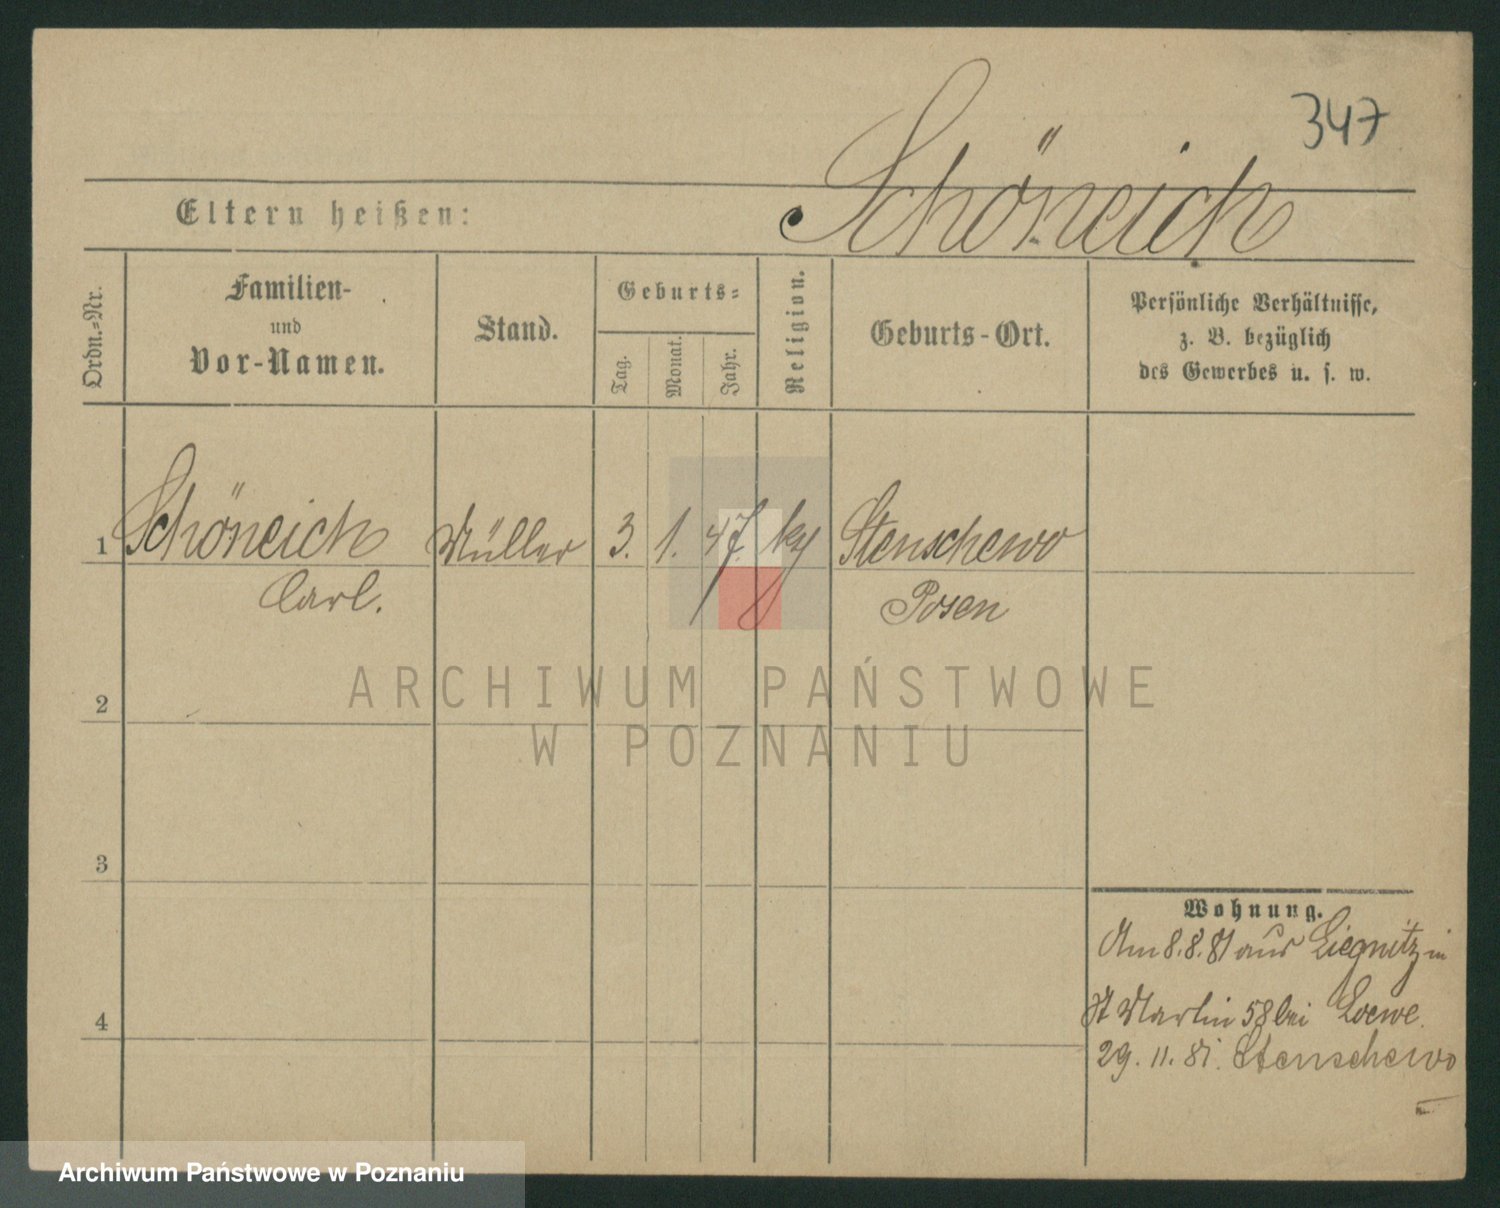 347
Schöneich
Eltern heißen:
Ordn.=Nr.
Familien-
und
Vor-Namen.
Stand.
Geburts=
Tag.
Monat.
Jahr.
Religion.
Geburts-Ort.
Persönliche Verhältnisse,
z. B. bezüglich
des Gewerbes u. s. w.
1 Schöneich Müller 3. 1. 47. Stenschewo
Carl. Posen
ARCHIWUM PAŃSTWOWE
W POZNANIU
2
3
4
Wohnung.
Am 8.8.81 aus Liegnitz in
St Martin 58 bei Loewe.
29. 11. 81. Stenschewo
Archiwum Państwowe w Poznaniu